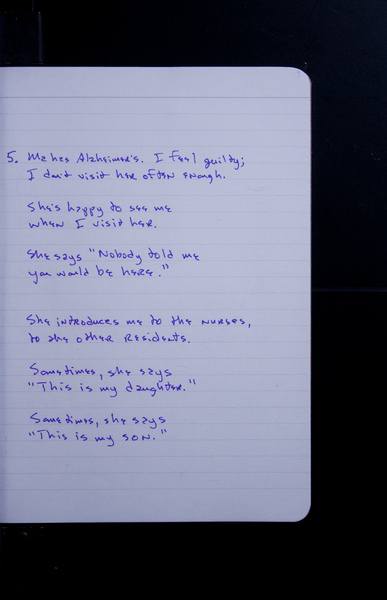 5. Ma has Alzheimer's. I feel guilty;
I don't visit her often enough.
She's happy to see me
when I visit her.
She says "Nobody told me
you would be here."
She introduces me to the nurses,
to the other residents.
Sometimes, she says
"This is my daughter."
Sometimes, she says
"This is my son."